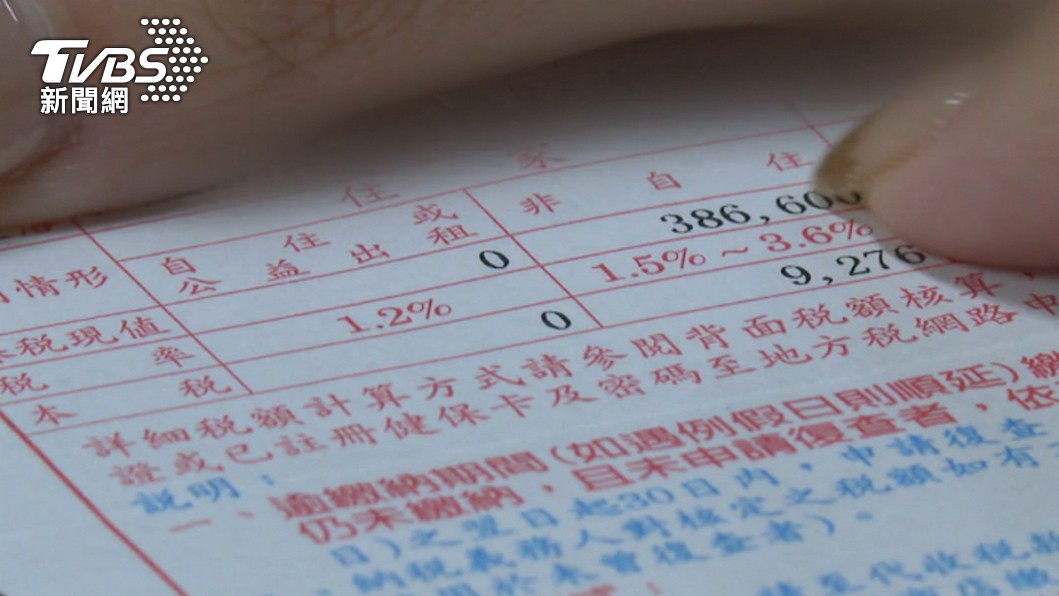 TVBS
新聞網
住 家
自住或
公益出租
非自住
情形
稅現值
0
386,60
稅率
1.2%
1.5%~3.6%
本稅
0
9,276
詳細稅額計算方式請參閱背面稅額核算,
證或已註冊健保卡及密碼至地方稅網路申
說明:
一、逾繳納期間(如遇例假日則順延)繳
仍未繳納,且未申請復查者,依
日)之翌日起30日內,申請復查
納稅義務人對核定之稅額如有
用於未曾復查者)。
請至代收稅款